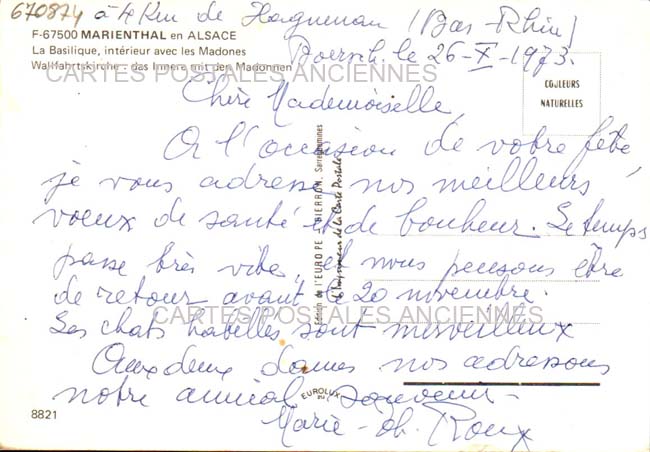 670874 à 4 Km de Haguenau (Bas-Rhin)
F-67500 MARIENTHAL en ALSACE
La Basilique, intérieur avec les Madones
Wallfahrtskirche : das Innere mit den Madonnen
Boersch. le 26-X-1973.
CARTES POSTALES ANCIENNES
COULEURS
NATURELLES
Chère Mademoiselle,
A l'occasion de votre fête
je vous adresse nos meilleurs
voeux de santé et de bonheur. Le temps
passe très vite, et nous pensons être
de retour avant le 20 novembre.
CARTES POSTALES ANCIENNES
Les chats sont merveilleux
Aux deux dames nos adressons
notre amical souvenir -
Marie-Ch. Roux
Edition de l'EUROPE PIERRON, Sarreguemines
l'Imprimeur de la Carte Postale
EUROLUX
8821